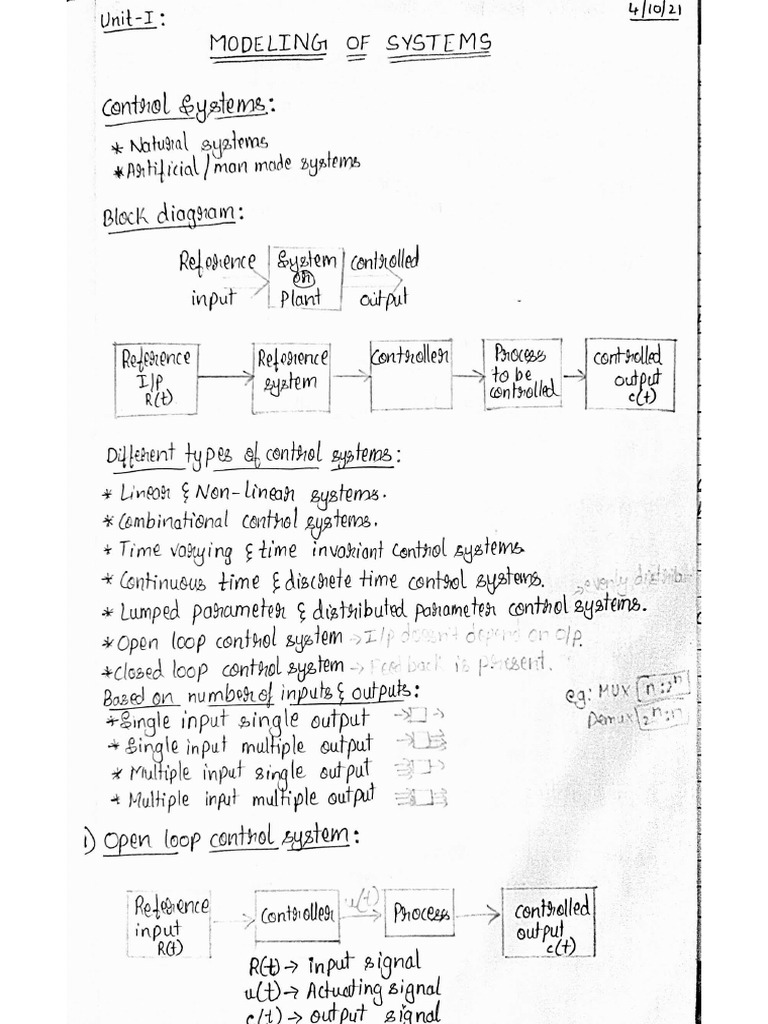 Unit-I:
4/10/21
MODELING OF SYSTEMS
Control Systems:
* Natural systems
* Artificial/man made systems
Block diagram:
Reference input
System or Plant
controlled output
Reference I/P R(t)
Reference system
Controller
Process to be controlled
controlled output c(t)
Different types of control systems:
* Linear & Non-linear systems.
* Combinational control systems.
* Time varying & time invariant control systems
* Continuous time & discrete time control systems.
→ evenly distribut
* Lumped parameter & distributed parameter control systems.
* Open loop control system → I/p doesn't depend on O/p.
* Closed loop control system → Feedback is present.
Based on number of inputs & outputs:
eg: MUX n:2^n
Demux 2^n:n
* Single input single output
* Single input multiple output
* Multiple input single output
* Multiple input multiple output
i) Open loop control system:
Reference input R(t)
Controller
u(t)
Process
controlled output c(t)
R(t) → input signal
u(t) → Actuating signal
c(t) → output signal